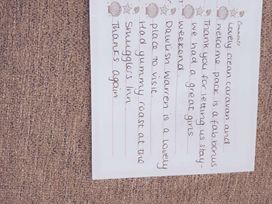 Comments
Lovely clean caravan and
welcome pack is a fab bonus
Thank you for letting us stay-
we had a great girls
weekend.
Dawlish Warren is a lovely
place to visit
Had yummy roast at the
Smugglers Inn
Thanks again